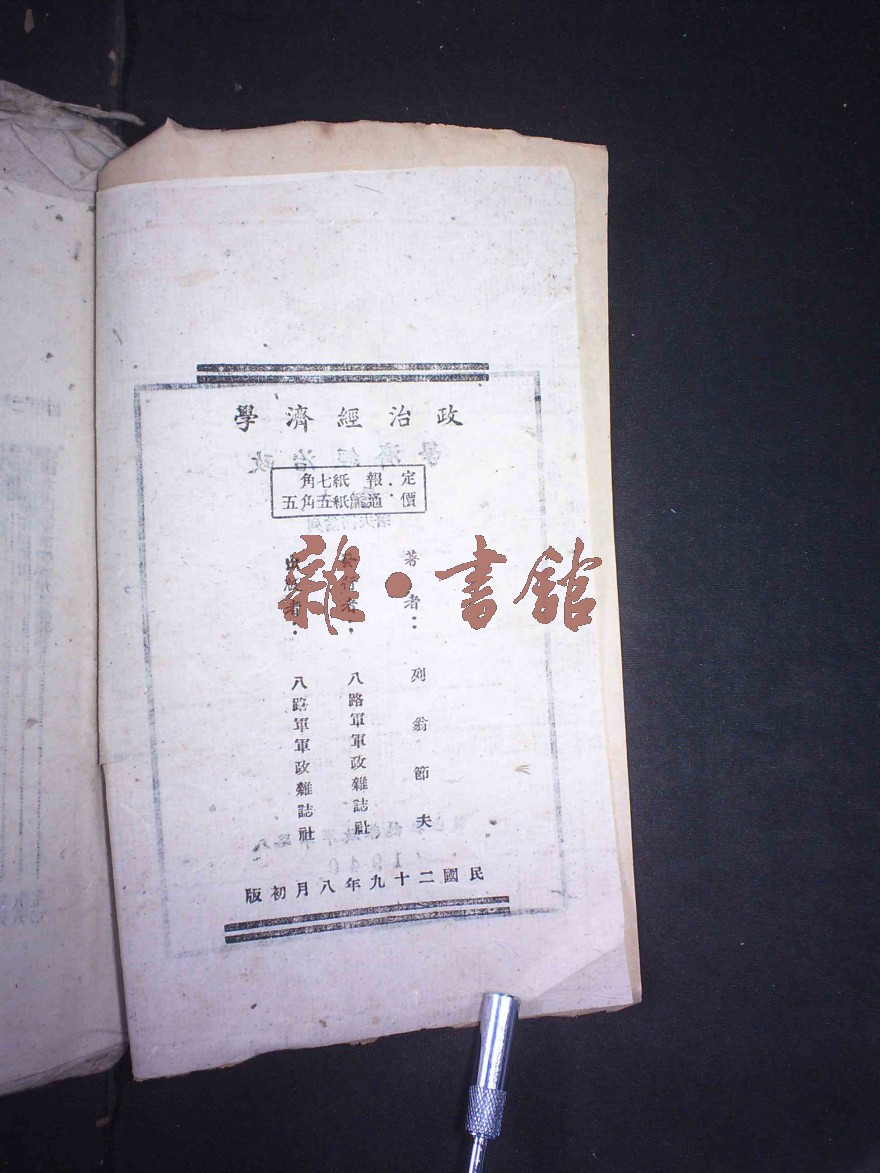 政治經濟學
定價：報紙七角
通紙五角五
著者：列翁節夫
行者：八路軍軍政雜誌社
出版者：八路軍軍政雜誌社
民國二十九年八月初版
雜·書館